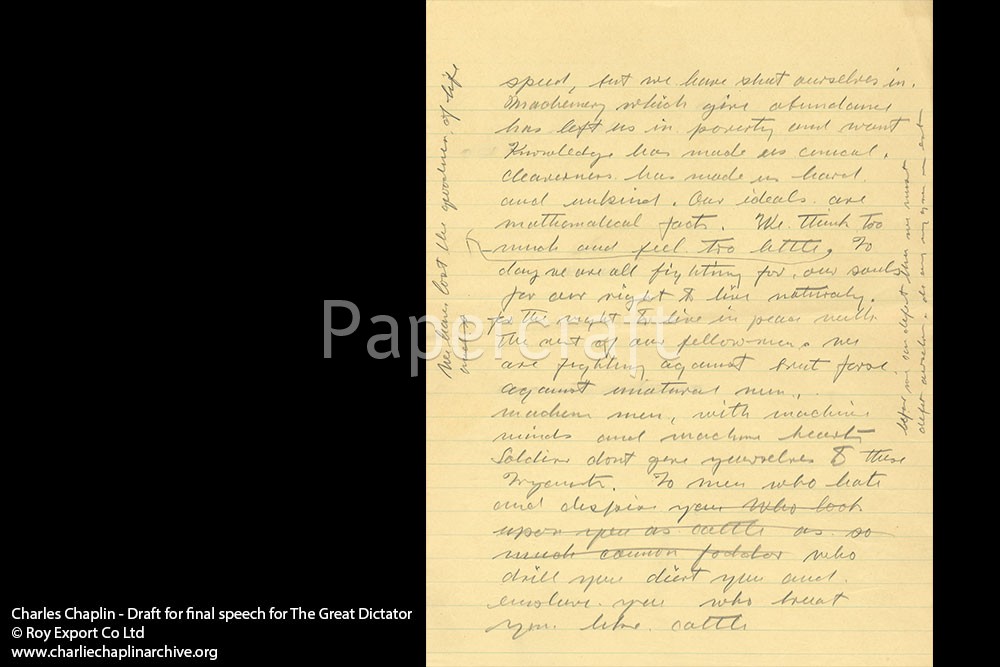 speed, but we have shut ourselves in.
Machenery which give abundance
has left us in poverty and want
Knowledge has made us cinical.
cleaverness has made us hard
and unkind. Our ideals are
mathematical facts. We think too
much and feel too little. To
day we are all fighting for our souls
for our right to live naturaly.
the right to live in peace with
the rest of our fellowmen we
are fighting against brut forse
against unatural men,
machine men, with machine
minds and machine hearts
Soldiers dont give yourselves to these
To men who hate
and despise you who look
upon you as cattle as so
much cannon fodder who
drill you diert you and
enslave you who treat
you like cattle
We have lost the goodness of life
before we can defeat them we must
defeat ourselves
Papercraft
Charles Chaplin - Draft for final speech for The Great Dictator
© Roy Export Co Ltd
www.charliechaplinarchive.org